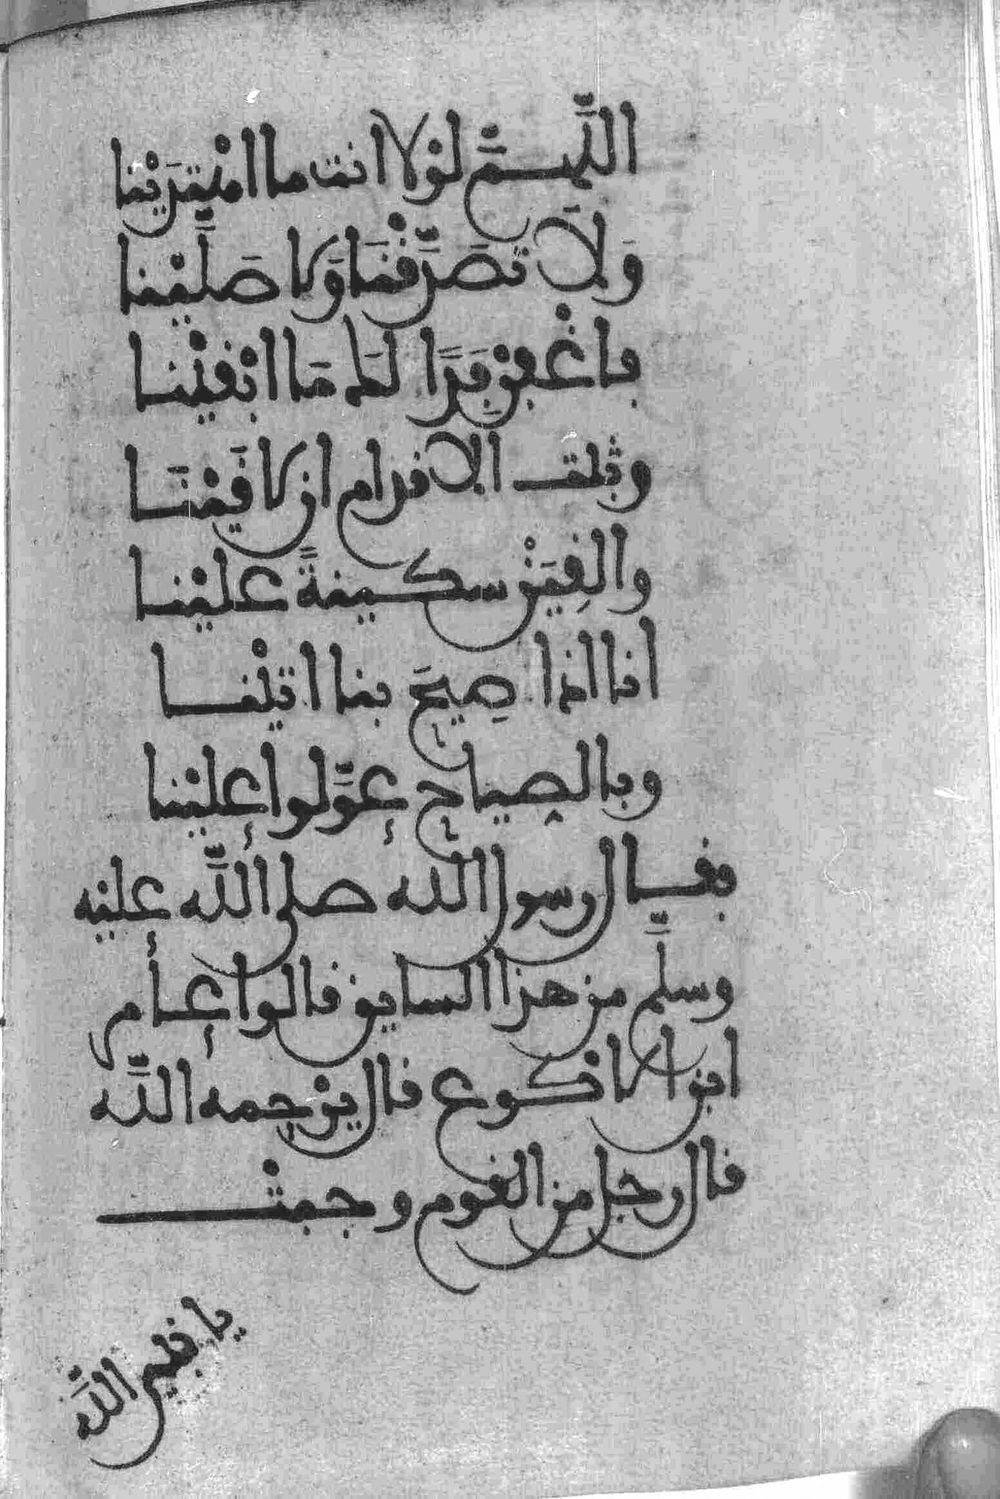 اللَّهمَّ لوْلا انت ما اهْتدَيْنا
وَلَا تصَدَّقْنَا وَلا صَلَّيْنا
فاغْفِرْ فِدًا لكَ مَا ابْقَيْنا
وثبت الاقدام ان لاقَيْنَا
والقِيَنْ سكينةً عليْنا
انا اذا صِيحَ بنا اتيْنا
وبالصياح عوَّلوا عليْنا
فقال رسول الله صلى اللَّه عليْه
وسلَّم من هذا السايق قالوا عامر
ابن الاكْوع قال يرْحمه اللَّه
قال رجل من القوم وجبتْ
يا نـيـر اللَّه